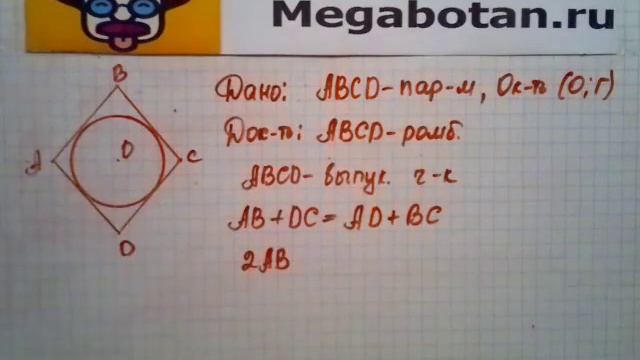 Megabotan.ru
B
Дано: ABCD-пар-м, Ок-ть (O; r)
Док-ть: ABCD-ромб.
A
O
C
ABCD-выпук. ч-к
AB+DC=AD+BC
D
2AB